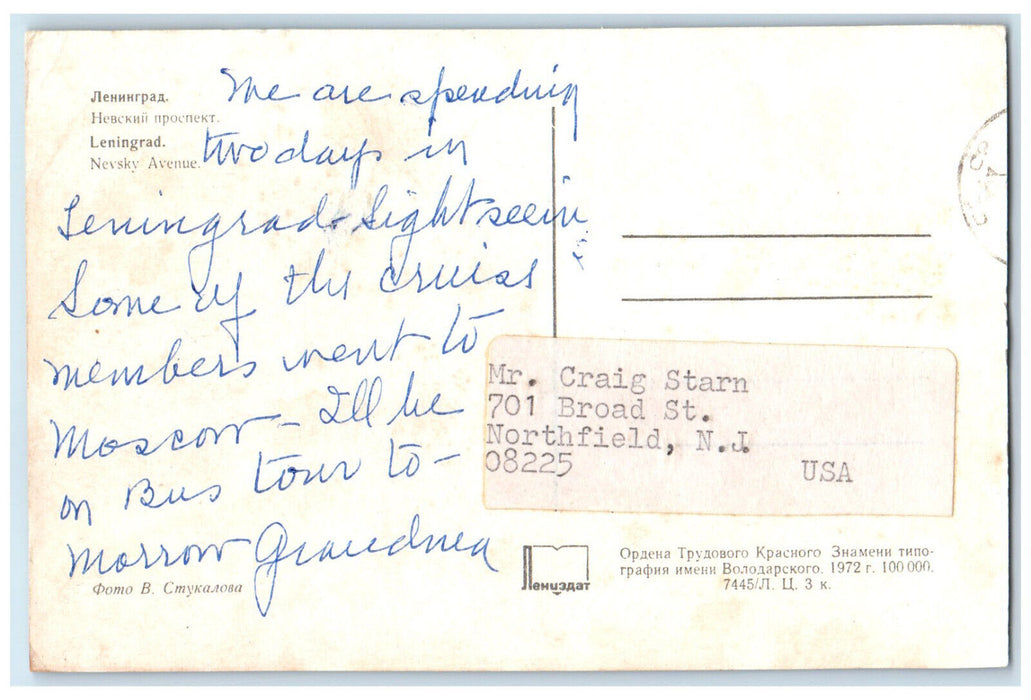 Ленинград.
Невский проспект.
Leningrad.
Nevsky Avenue.
We are spending
two days in
Leningrad - Sightseein
Some of the cruise
members went to
Moscow - I'll be
on Bus tour to-
morrow Grandma
Фото В. Стукалова
Mr. Craig Starn
701 Broad St.
Northfield, N.J.
08225 USA
Лениздат
Ордена Трудового Красного Знамени типо-
графия имени Володарского. 1972 г. 100 000.
7445/Л. Ц. 3 к.